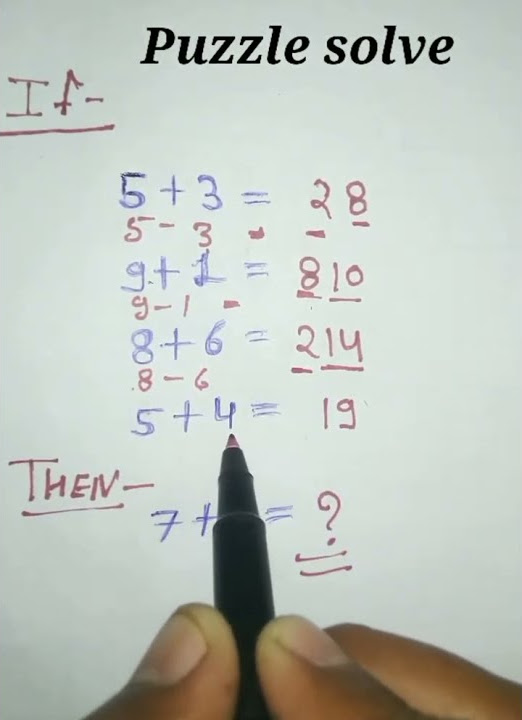 Puzzle solve
If-
5 + 3 = 28
5 - 3 -
9 + 1 = 810
9 - 1 -
8 + 6 = 214
8 - 6
5 + 4 = 19
THEN-
7 + = ?